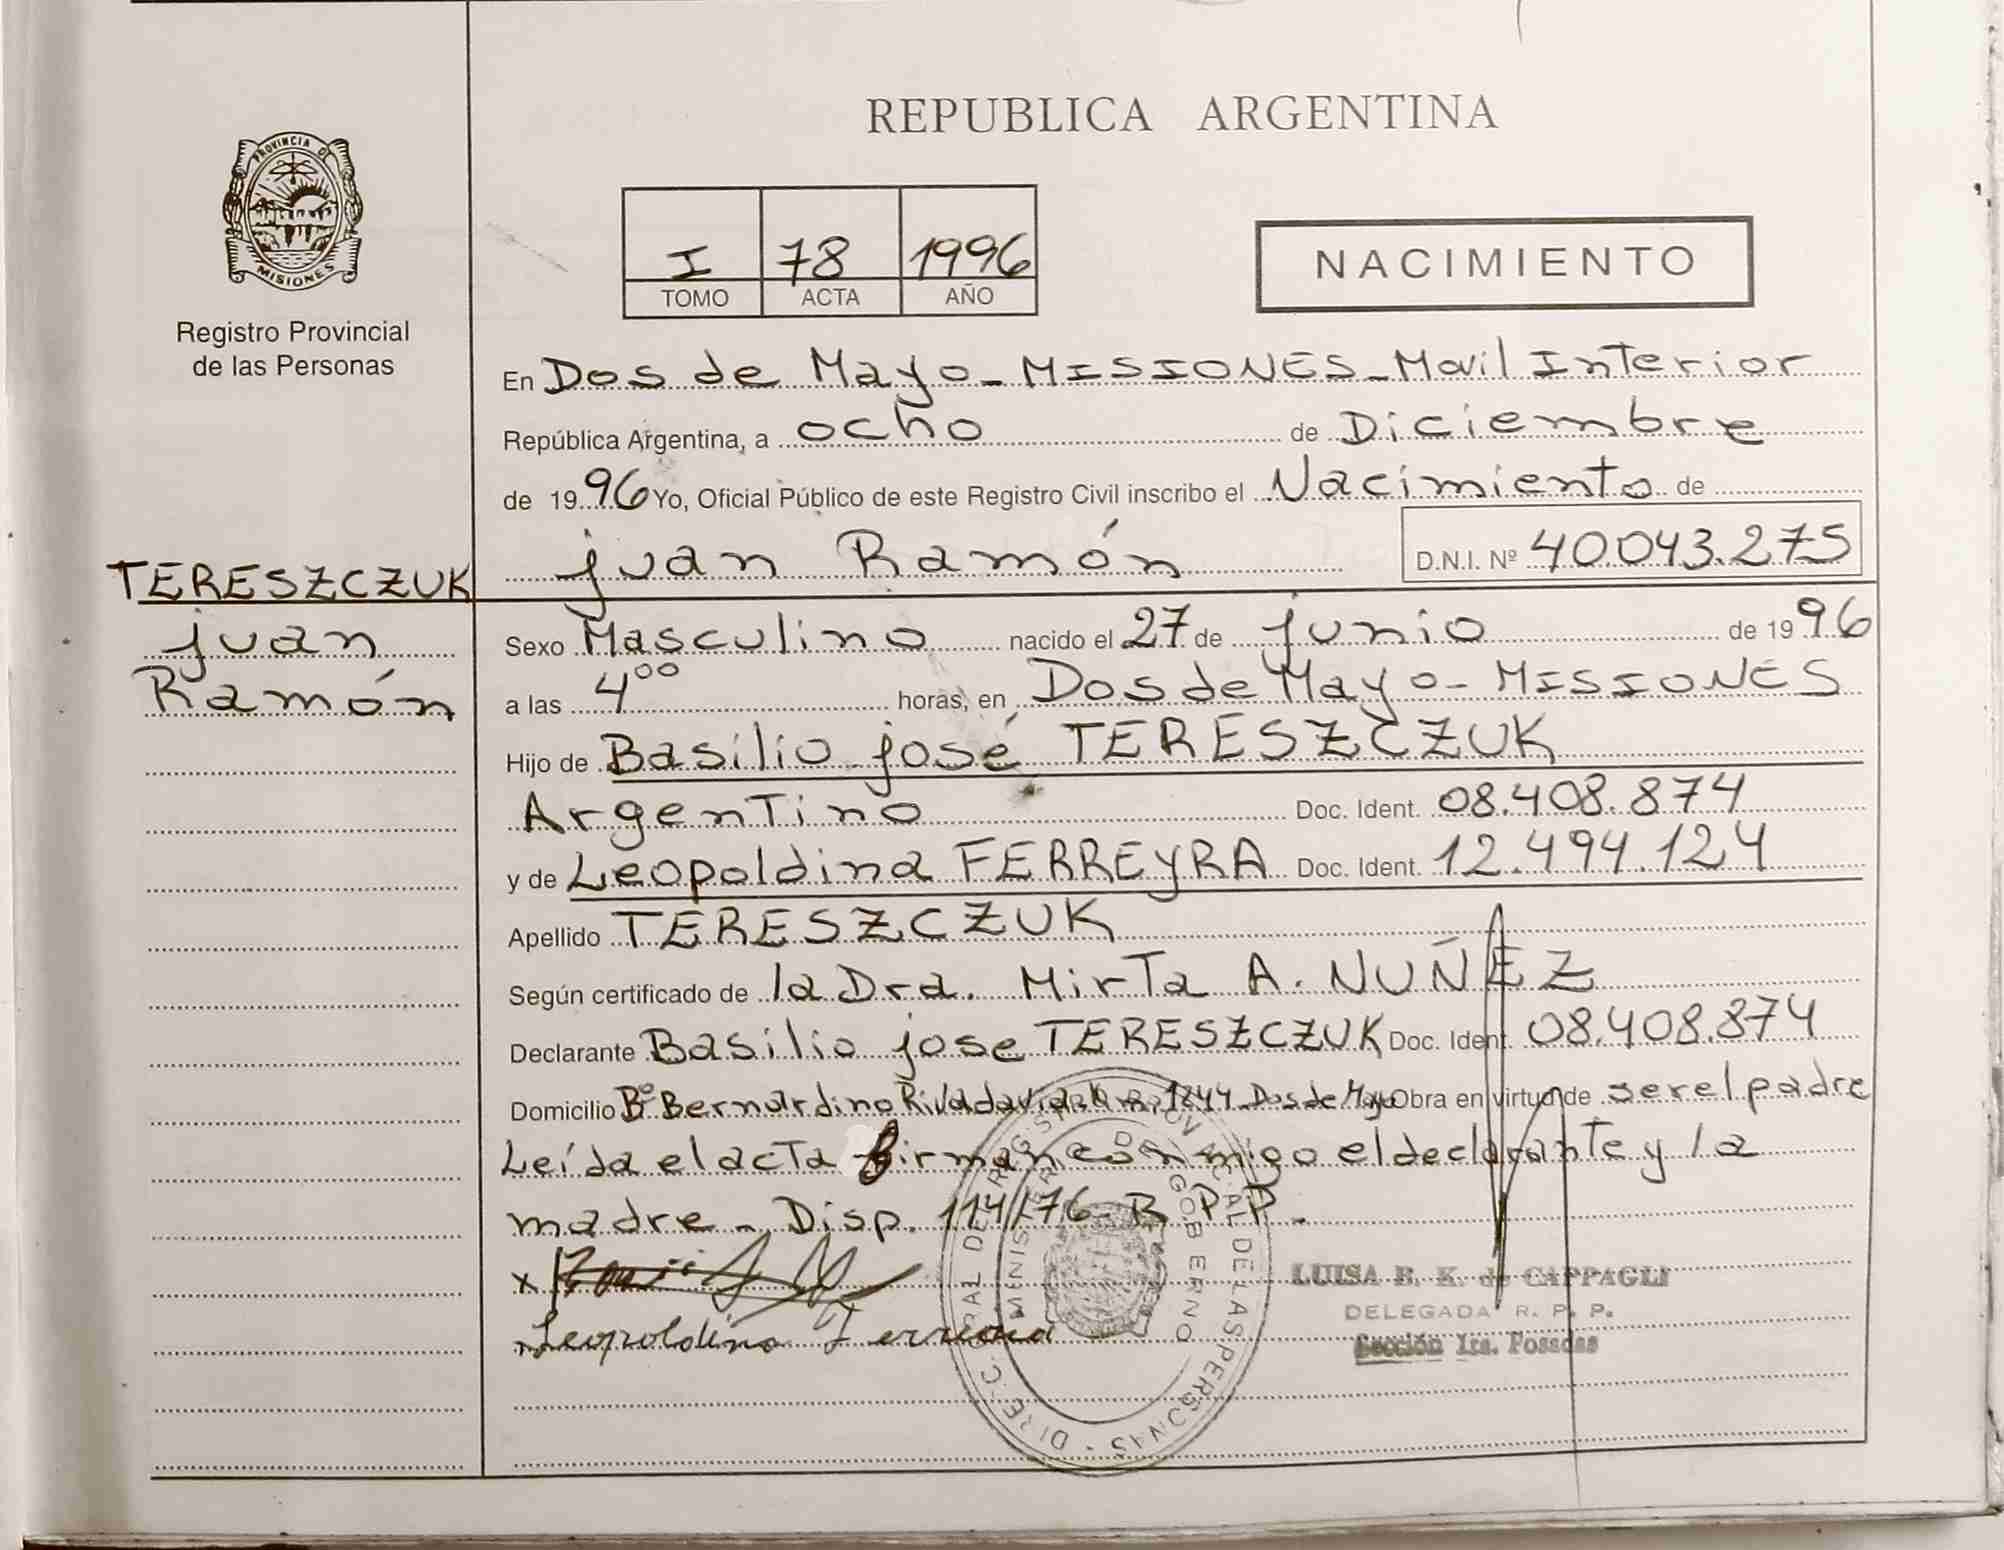 PROVINCIA DE
MISIONES
Registro Provincial
de las Personas
TERESZCZUK
Juan
Ramón
REPUBLICA ARGENTINA
I 78 1996
TOMO ACTA AÑO
NACIMIENTO
En Dos de Mayo - MISIONES - Movil Interior
República Argentina, a ocho de Diciembre
de 1996 Yo, Oficial Público de este Registro Civil inscribo el Nacimiento de
Juan Ramón D.N.I. Nº 40.043.275
Sexo Masculino nacido el 27 de junio de 1996
a las 4⁰⁰ horas, en Dos de Mayo - MISIONES
Hijo de Basilio José TERESZCZUK
Argentino Doc. Ident. 08.408.874
y de Leopoldina FERREYRA Doc. Ident. 12.494.124
Apellido TERESZCZUK
Según certificado de la Dra. Mirta A. NUÑEZ
Declarante Basilio jose TERESZCZUK Doc. Ident. 08.408.874
Domicilio Bº Bernardino Rivadavia 1244 Dos de Mayo Obra en virtud de ser el padre
Leída el acta firman conmigo el declarante y la
madre - Disp. 114/76 - R P P.
x
Leopoldina Ferreira
DIREC. GRAL DE REGISTRO PROVINCIAL DE LAS PERSONAS
MINISTERIO DE GOBIERNO
LUISA B. K. de CAPPAGLI
DELEGADA R. P. P.
Sección 1ra. Posadas